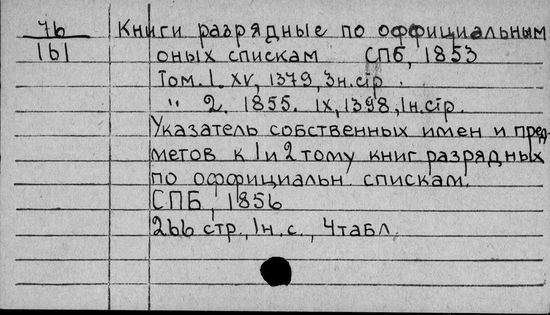 76 Книги разрядные по оффициальным
161 оных спискам СПБ, 1853
Том. 1. XV, 1379, 3н.стр.
" 2. 1855. IX, 1398, 1н.стр.
Указатель собственных имен и пред-
метов к 1 и 2 тому книг разрядных
по оффициальн. спискам.
СПБ, 1856
266 стр., 1н.с., 4 табл.